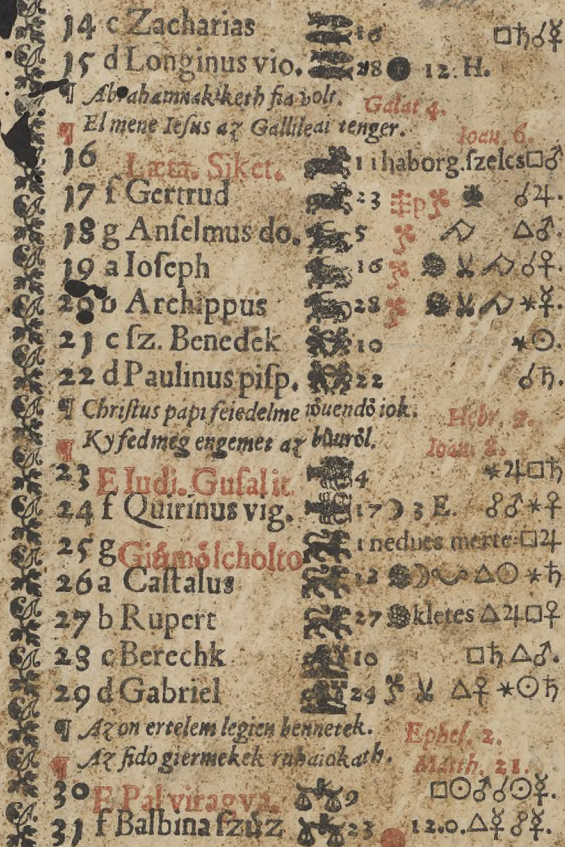 14 c Zacharias 16 □♄☌☿
15 d Longinus vio. 28 12. H.
¶ Abrahamnak keth fia volt. Galat 4.
¶ El mene Ieſus az Gallileai tenger. Ioan. 6.
16 Læta. Siket. 11 haborg. ſzeles □♂
17 f Gertrud 23 ☌♃.
18 g Anſelmus do. 5 △♂.
19 a Ioſeph 16 ☌♀.
20 b Archippus 28 ⚹☿.
21 c ſz. Benedek 10 ⚹☉.
22 d Paulinus piſp. 22 ☌♄.
¶ Chriſtus papi feiedelme iöuendö iok. Hebr. 9.
¶ Ky fed meg engemet az bűuröl. Ioan. 8.
23 E Iudi. Guſalit. 4 ⚹♃□♄
24 f Quirinus vig. 17 ☽ 3 E. ☍♂⚹♀
25 g 1 nedues □♃
26 a Caſtalus 12 △☉ ⚹♄
27 b Rupert 27 kletes △♃□♀
28 c Berechk 10 □♄△♂.
29 d Gabriel 24 △♀ ⚹☉♄
¶ Azon ertelem legien bennetek. Epheſ. 2.
¶ Az ſido giermekek ruhaiokath. Matth. 21.
30 E Pal viragva. 9 □☉♂☍☉☿.
31 f Balbina ſzűz 23 12.0.△☿ ☍☿.